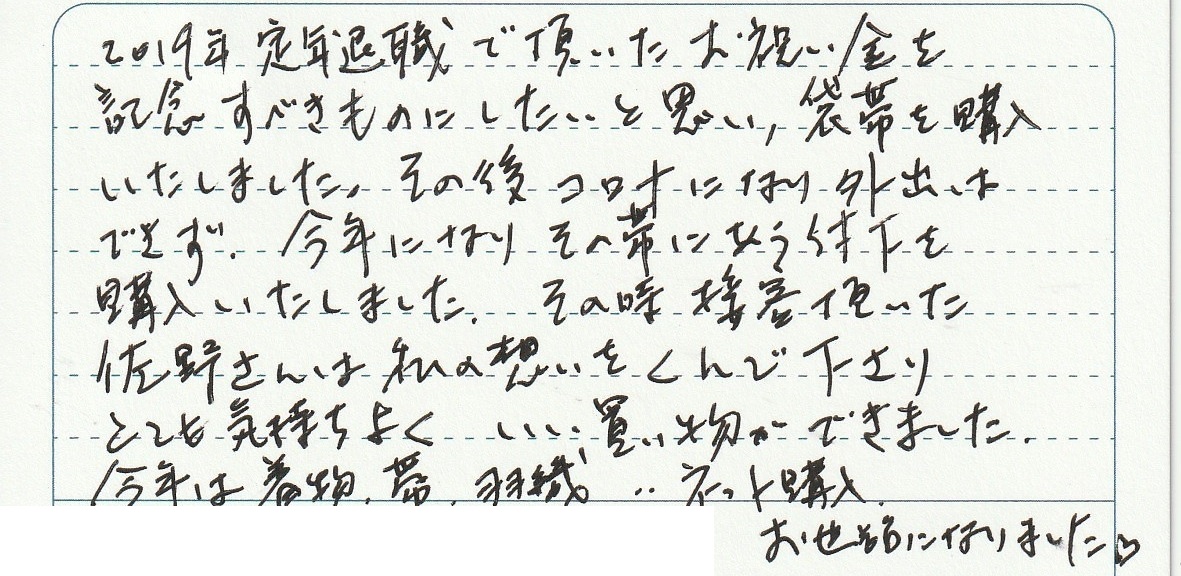 2019年 定年退職で頂いたお祝い金を
記念すべきものにしたいと思い,袋帯を購入
いたしました。その後コロナになり外出は
できず. 今年になりその帯に合う付下を
購入いたしました. その時接客頂いた
佐野さんは私の想いをくんで下さり
とても気持ちよく いい買い物ができました.
今年は着物.帯.羽織‥ネット購入.
お世話になりました♡